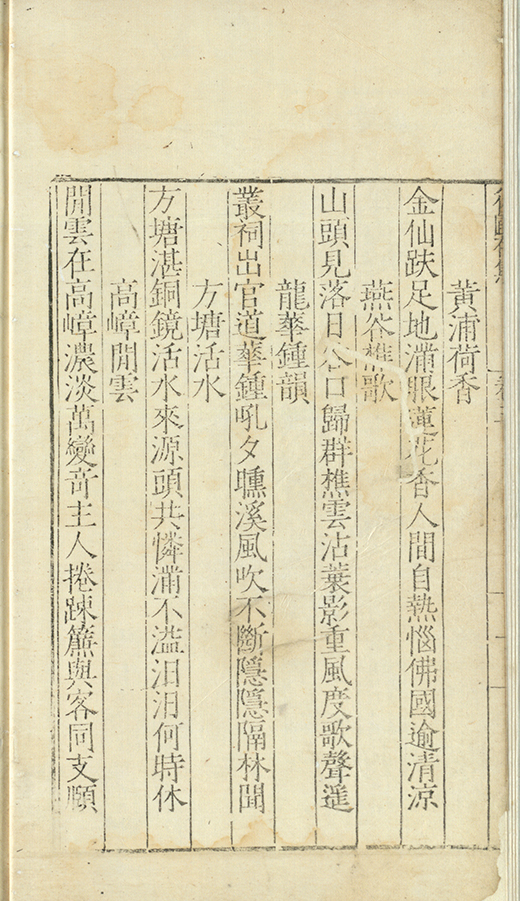 黃浦荷香
金仙趺足地滿眼蓮花香人間自熱惱佛國逾清凉
燕谷樵歌
山頭見落日谷口歸群樵雲沾蓑影重風度歌聲遥
龍華鍾韻
叢祠出官道華鍾吼夕曛溪風吹不斷隱隱隔林聞
方塘活水
方塘湛銅鏡活水來源頭共憐滿不溢汨汨何時休
高嶂閒雲
閒雲在高嶂濃淡萬變竒主人捲踈簾與客同支頤